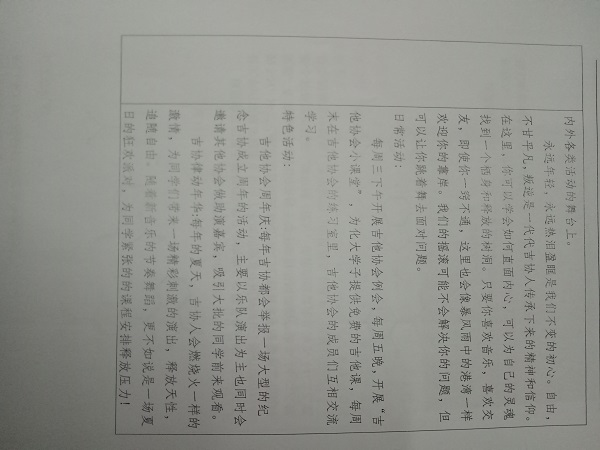 内外各类活动的舞台上。
永远年轻，永远热泪盈眶是我们不变的初心。自由，
不甘平凡，叛逆是一代代吉协人传承下来的精神和信仰。
在这里，你可以学会如何直面内心，可以为自己的灵魂
找到一个栖身和释放的树洞。只要你喜欢音乐，喜欢交
友，即使你一窍不通，这里也会像暴风雨中的港湾一样
欢迎你的靠岸。我们的摇滚可能不会解决你的问题，但
可以让你跳着舞去面对问题。
日常活动：
每周三下午开展吉他协会例会，每周五晚，开展“吉
他协会小课堂”，为化大学子提供免费的吉他课，每周
末在吉他协会的练习室里，吉他协会的成员们互相交流
学习。
特色活动：
吉他协会周年庆:每年吉协都会举报一场大型的纪
念吉协成立周年的活动，主要以乐队演出为主也同时会
邀请其他协会做助演嘉宾，吸引大批的同学前来观看。
吉协律动年华:每年的夏天，吉协人会燃烧火一样的
激情，为同学们带来一场精彩刺激的演出，释放天性，
追随自由。随着新音乐的节奏舞蹈，更不如说是一场夏
日的狂欢派对，为同学紧张的的课程安排释放压力！